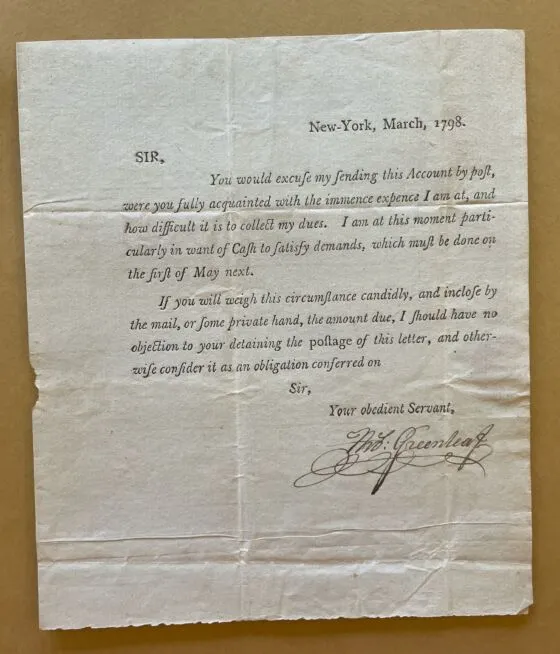 New-York, March, 1798.
SIR,
You would excuſe my ſending this Account by poſt,
were you fully acquainted with the immence expence I am at, and
how difficult it is to collect my dues. I am at this moment parti-
cularly in want of Caſh to ſatisfy demands, which muſt be done on
the firſt of May next.
If you will weigh this circumſtance candidly, and incloſe by
the mail, or ſome private hand, the amount due, I ſhould have no
objection to your detaining the poſtage of this letter, and other-
wiſe conſider it as an obligation conferred on
Sir,
Your obedient Servant,
Th<sup></sup>: Greenleaf